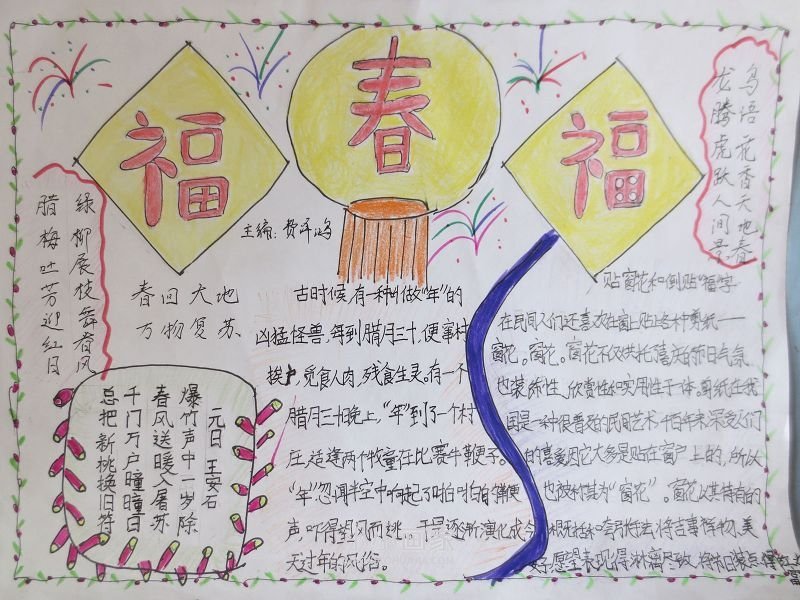 福
春
福
主编:费泽鸿
鸟语花香天地春
龙腾虎跃人间景
绿柳展枝舞春风
腊梅吐芳迎红日
春回大地
万物复苏
元日 王安石
爆竹声中一岁除
春风送暖入屠苏
千门万户瞳瞳日
总把新桃换旧符
古时候有一种叫做“年”的
凶猛怪兽,每到腊月三十,便窜村
挨户,觅食人肉,残食生灵。有一个
腊月三十晚上,“年”到了一个村
庄,适逢两个牧童在比赛牛鞭子。
“年”忽闻半空中响起了啪啪的鞭
声,吓得望风而逃
天过年的风俗。
贴窗花和倒贴“福”字
在民间人们还喜欢在窗上贴上各种剪纸——
窗花。窗花不仅烘托了喜庆的节日气氛
也装饰性、欣赏性和实用性于一体。剪纸在我
国是一种很普及的民间艺术千百年来深受人们
的喜爱因它大多是贴在窗户上的,所以
也被称其为“窗花”。窗花以其特有的
概括和夸张手法将吉事祥物、美
好愿望表现得淋漓尽致,将节日装点得